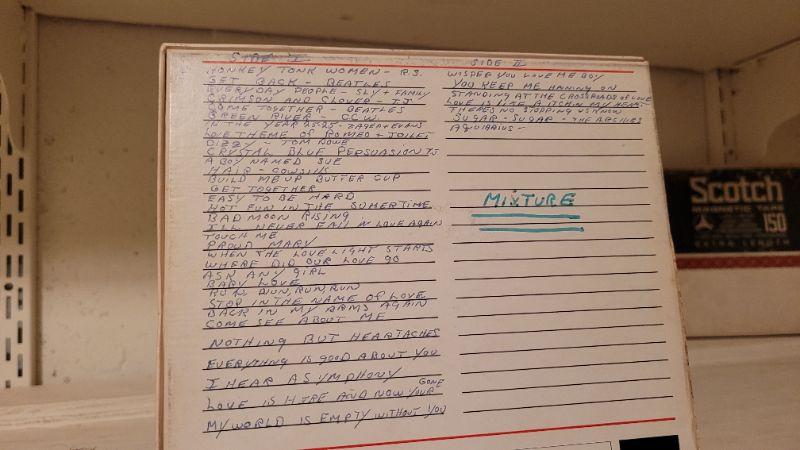 SIDE I
HONKEY TONK WOMEN - R.S.
GET BACK - BEATLES
EVERYDAY PEOPLE - SLY + FAMILY
CRIMSON AND CLOVER - TJ
COME TOGETHER - BEATLES
GREEN RIVER - C.C.W.
IN THE YEAR 2525 - ZAGER + EVANS
LOVE THEME OF ROMEO + JOILET
DIZZY - TOM ROWE
CRYSTAL BLUE PERSUASION TJ
A BOY NAMED SUE
HAIR - COWSILLS
BUILD ME UP BUTTER CUP
GET TOGETHER
EASY TO BE HARD
HOT FUN IN THE SUMERTIME
BAD MOON RISING
I'LL NEVER FALL IN LOVE AGAIN
TOUCH ME
PROUD MARY
WHEN THE LOVE LIGHT STARTS
WHERE DID OUR LOVE GO
ASK ANY GIRL
BABY LOVE
RUN, RUN, RUN
STOP IN THE NAME OF LOVE
BACK IN MY ARMS AGAIN
COME SEE ABOUT ME
NOTHING BUT HEARTACHES
EVERYTHING IS GOOD ABOUT YOU
I HEAR A SYMPHONY
LOVE IS HIRE AND NOW YOUR GONE
MY WORLD IS EMPTY WITHOUT YOU
SIDE II
WISPER YOU LOVE ME BOY
YOU KEEP ME HANING ON
STANDING AT THE CROSSROADS OF LOVE
LOVE IS LIKE A ITCHIN MY HEART
THERE'S NO STOPPING US NOW
SUGAR - SUGAR - THE ARCHIES
AQUIRIUS -
MIXTURE
Scotch
MAGNETIC TAPE
150
EXTRA LENGTH